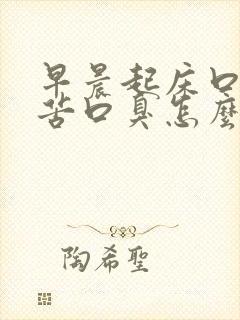 早晨起床口
苦口臭怎麼
陶希聖